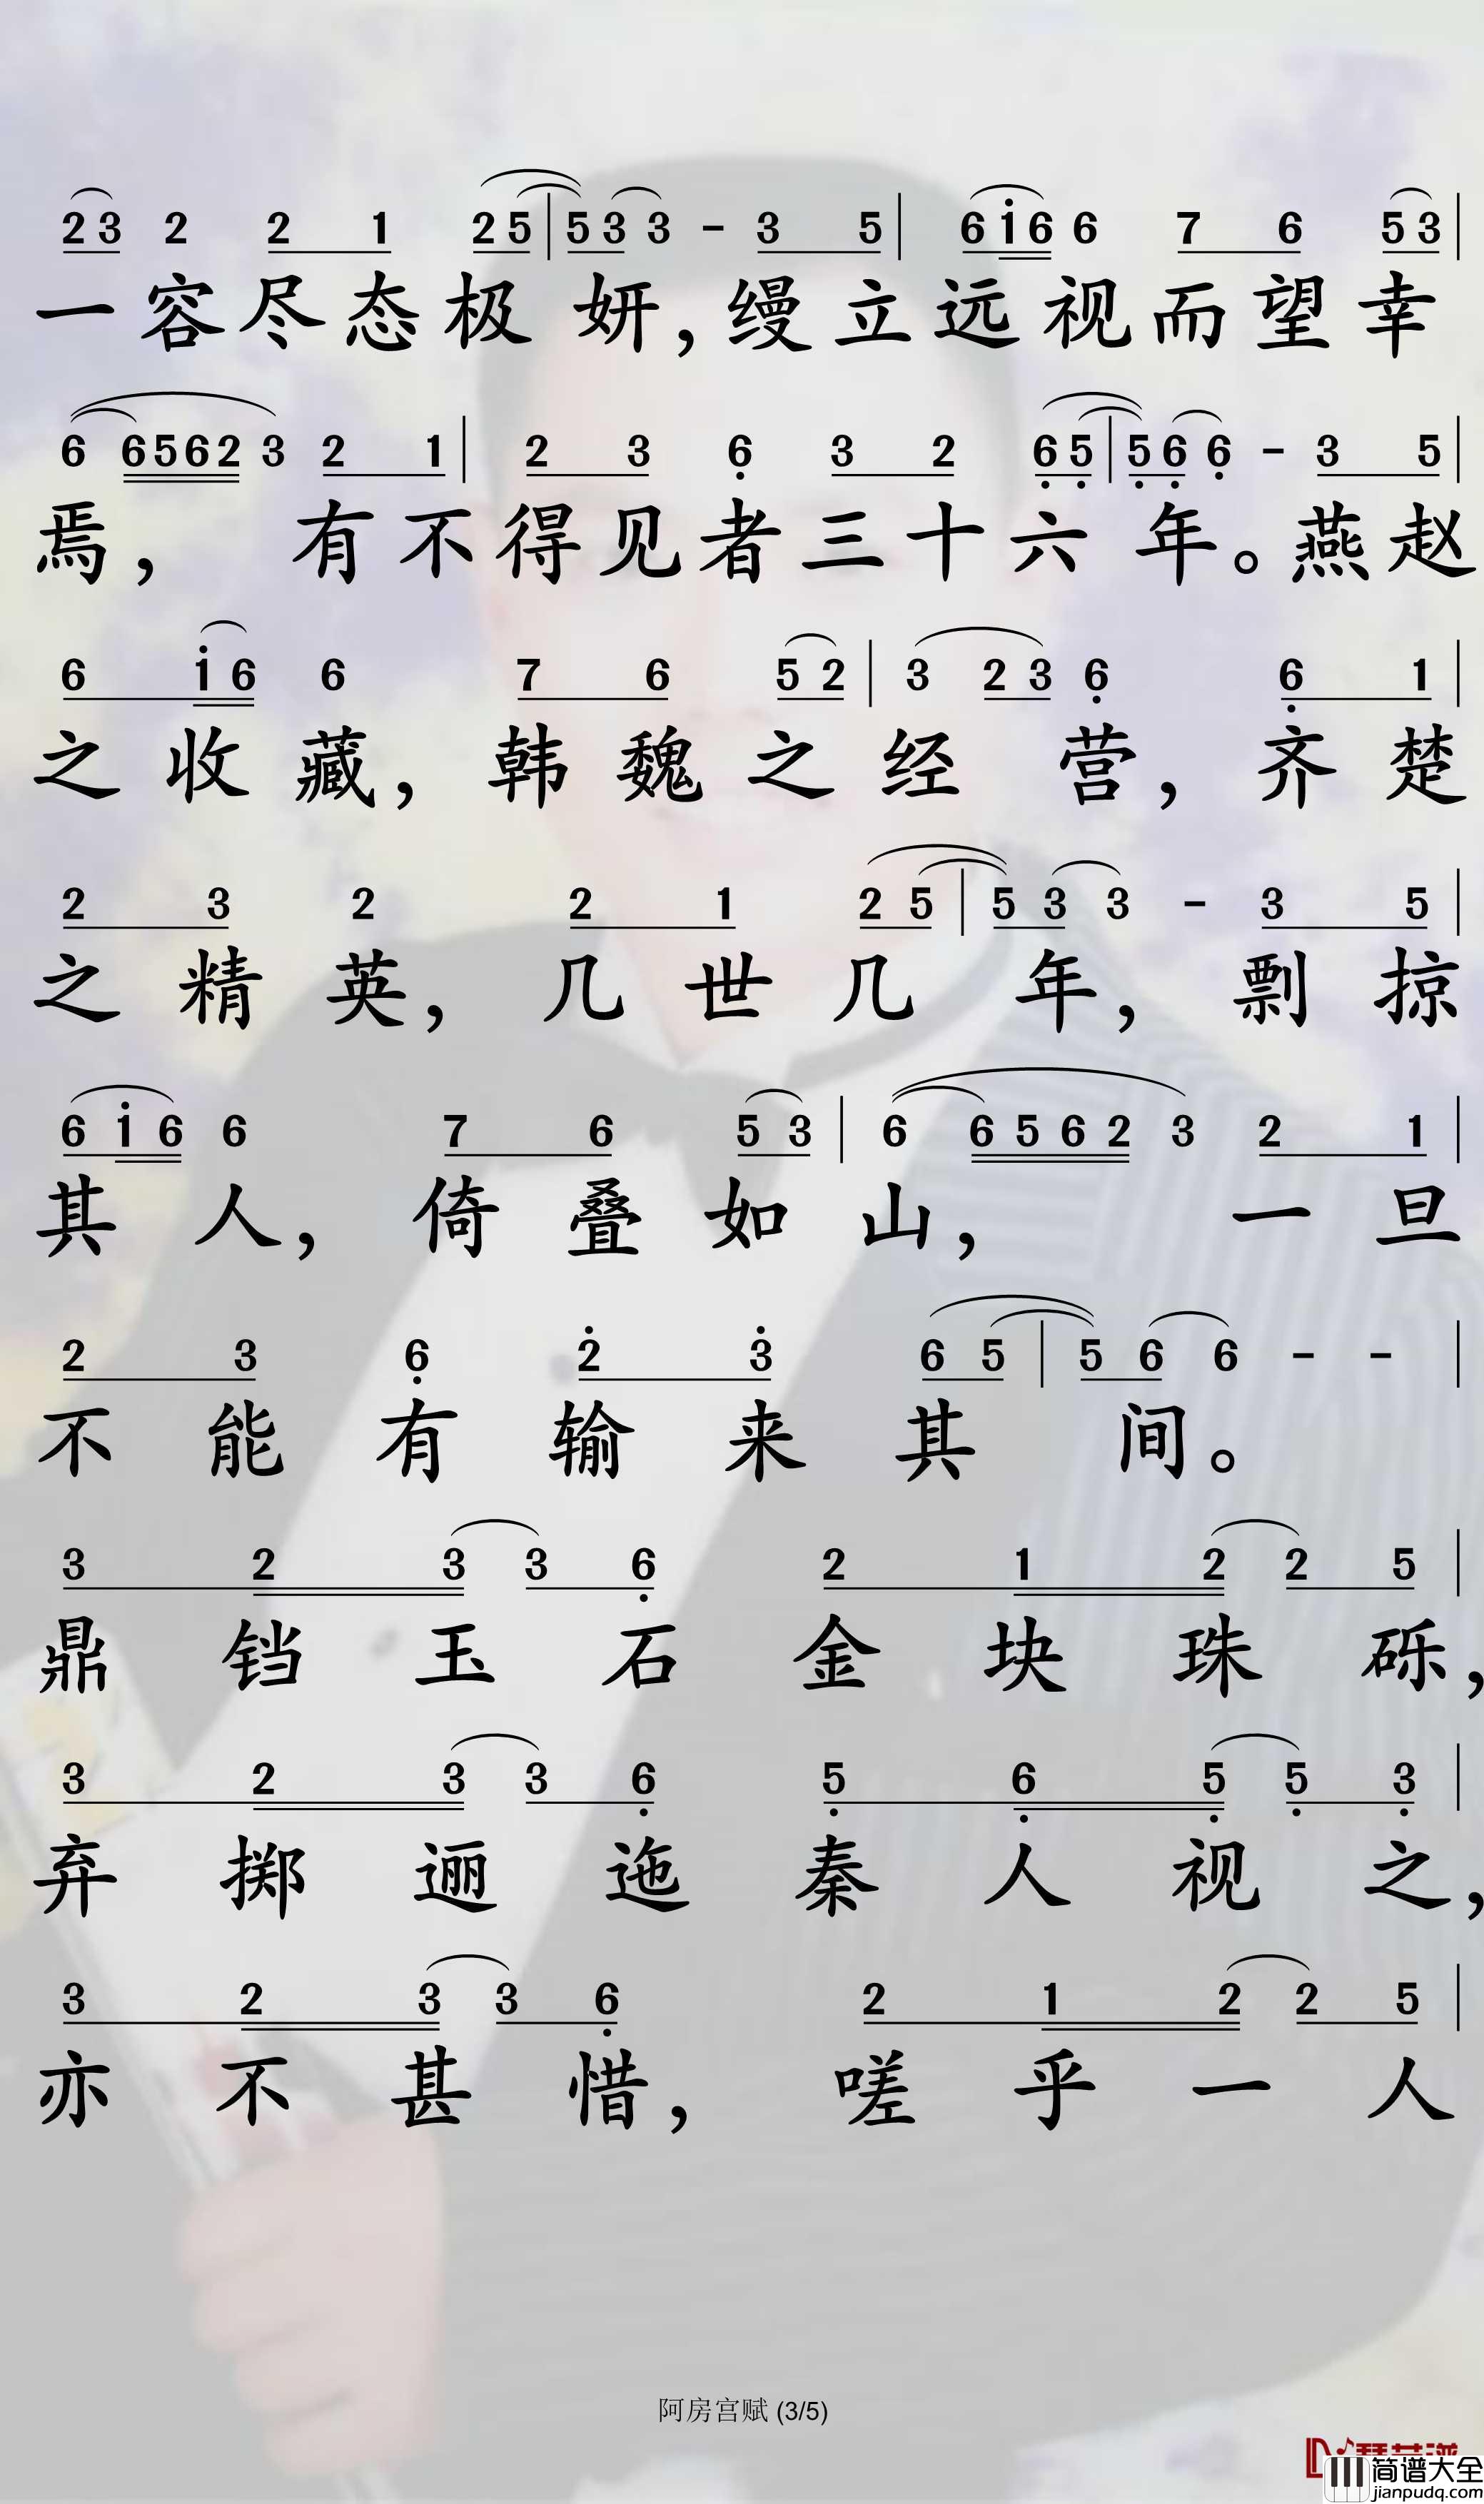 2 3 2 2 1 2 5 | 5 3 3 - 3 5 | 6 i 6 6 7 6 5 3 |
一容尽态极妍,缦立远视而望幸
6 6 5 6 2 3 2 1 | 2 3 6 3 2 6 5 | 5 6 6 - 3 5 |
焉,有不得见者三十六年。燕赵
6 i 6 6 7 6 5 2 | 3 2 3 6 6 1 |
之收藏,韩魏之经营,齐楚
2 3 2 2 1 2 5 | 5 3 3 - 3 5 |
之精英,几世几年,剽掠
6 i 6 6 7 6 5 3 | 6 6 5 6 2 3 2 1 |
其人,倚叠如山,一旦
2 3 6 2 3 6 5 | 5 6 6 - - |
不能有输来其间。
3 2 3 3 6 2 1 2 2 5 |
鼎铛玉石金块珠砾,
3 2 3 3 6 5 6 5 5 3 |
弃掷逦迤秦人视之,
3 2 3 3 6 2 1 2 2 5 |
亦不甚惜,嗟乎一人
阿房宫赋 (3/5)
简谱大全
jianpudq.com